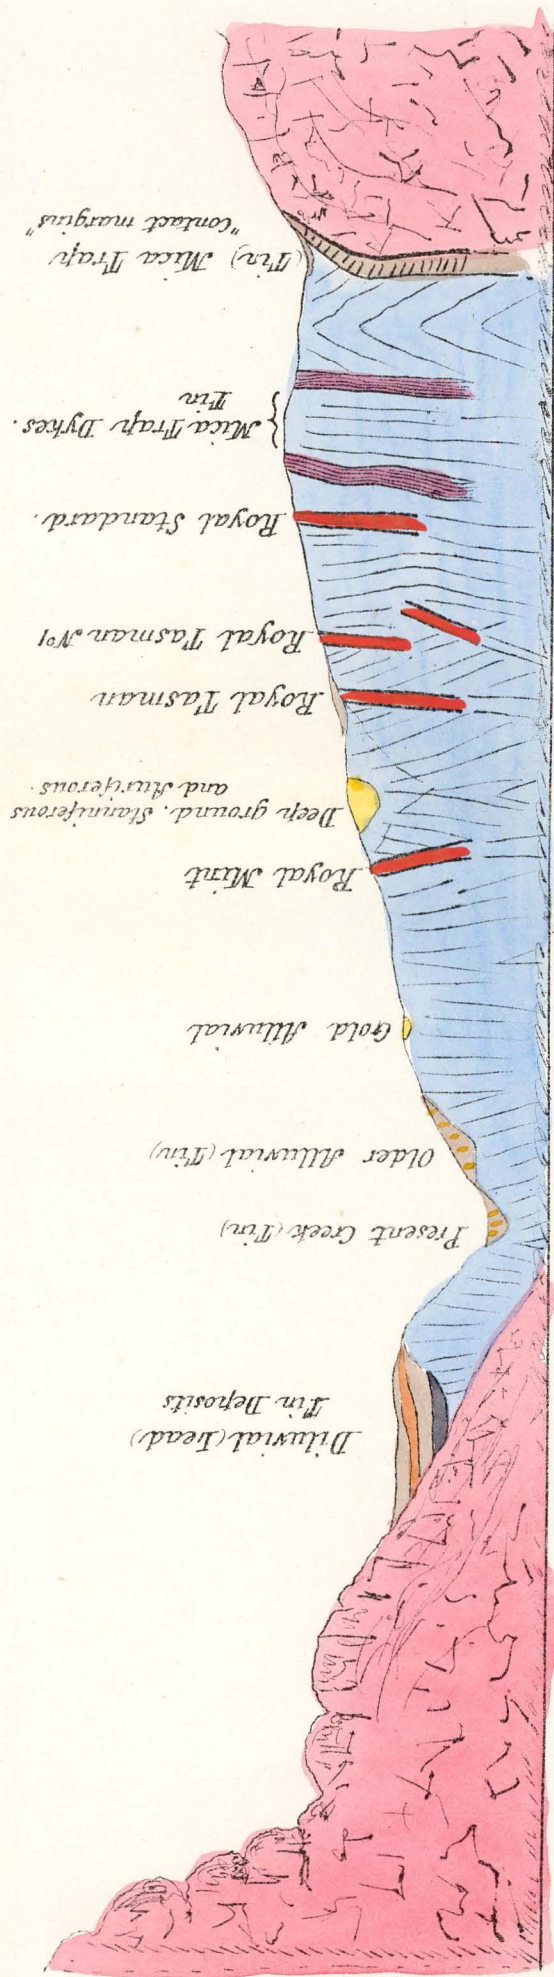 Diluvial (Lead)
Tin Deposits
Present Creek (Tin)
Older Alluvial (Tin)
Gold Alluvial
Royal Mint
Deep ground. Stanniferous
and Auriferous.
Royal Tasman
Royal Tasman No1
Royal Standard.
Mica Trap Dykes.
Tin
(Tin) Mica Trap
"Contact margins"